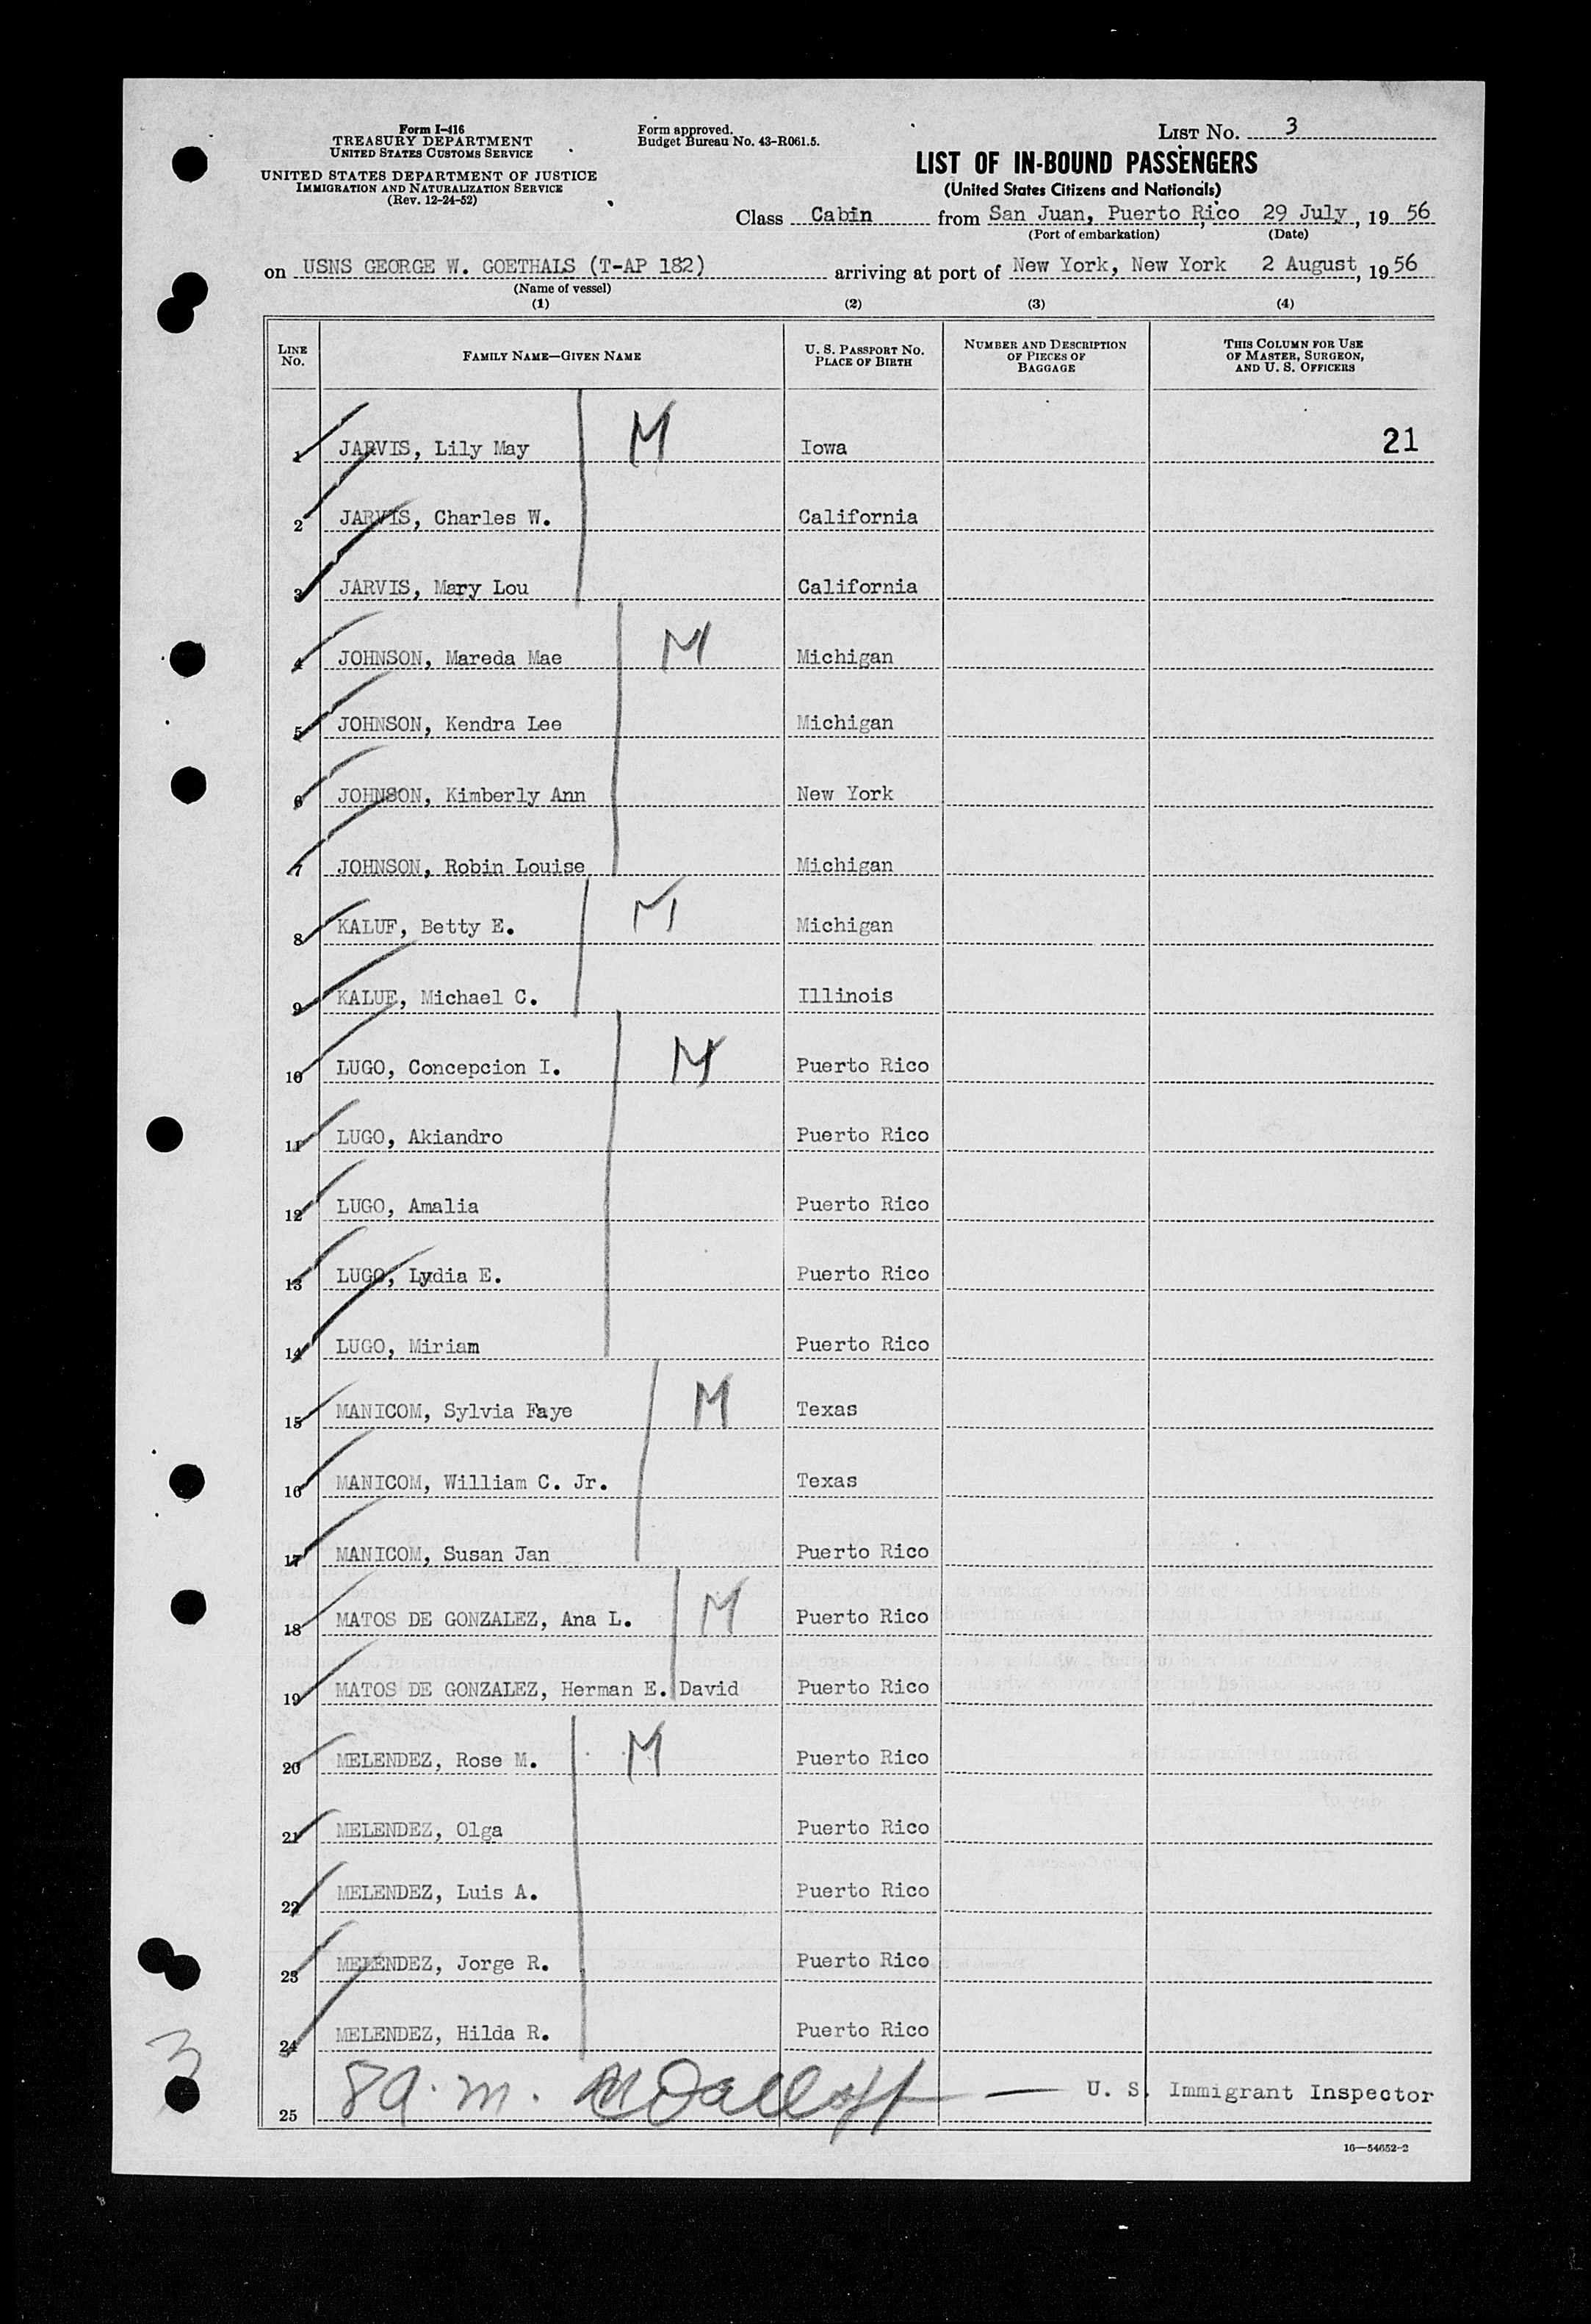 Form I-416
TREASURY DEPARTMENT
UNITED STATES CUSTOMS SERVICE
UNITED STATES DEPARTMENT OF JUSTICE
IMMIGRATION AND NATURALIZATION SERVICE
(Rev. 12-24-52)
Form approved.
Budget Bureau No. 43-R061.5.
LIST NO. 3
LIST OF IN-BOUND PASSENGERS
(United States Citizens and Nationals)
Class Cabin from San Juan, Puerto Rico, 29 July, 1956
(Port of embarkation) (Date)
on USNS GEORGE W. GOETHALS (T-AP 182) arriving at port of New York, New York 2 August, 1956
(Name of vessel)
(1) (2) (3) (4)
LINE NO. FAMILY NAME—GIVEN NAME U. S. PASSPORT NO. PLACE OF BIRTH NUMBER AND DESCRIPTION OF PIECES OF BAGGAGE THIS COLUMN FOR USE OF MASTER, SURGEON, AND U. S. OFFICERS
1 JARVIS, Lily May M Iowa 21
2 JARVIS, Charles W. California
3 JARVIS, Mary Lou California
4 JOHNSON, Mareda Mae M Michigan
5 JOHNSON, Kendra Lee Michigan
6 JOHNSON, Kimberly Ann New York
7 JOHNSON, Robin Louise Michigan
8 KALUF, Betty E. M Michigan
9 KALUF, Michael C. Illinois
10 LUGO, Concepcion I. M Puerto Rico
11 LUGO, Akiandro Puerto Rico
12 LUGO, Amalia Puerto Rico
13 LUGO, Lydia E. Puerto Rico
14 LUGO, Miriam Puerto Rico
15 MANICOM, Sylvia Faye M Texas
16 MANICOM, William C. Jr. Texas
17 MANICOM, Susan Jan Puerto Rico
18 MATOS DE GONZALEZ, Ana L. M Puerto Rico
19 MATOS DE GONZALEZ, Herman E. David Puerto Rico
20 MELENDEZ, Rose M. M Puerto Rico
21 MELENDEZ, Olga Puerto Rico
22 MELENDEZ, Luis A. Puerto Rico
23 MELENDEZ, Jorge R. Puerto Rico
24 MELENDEZ, Hilda R. Puerto Rico
3
25 8 a.m. U. S. Immigrant Inspector
16—54652-2